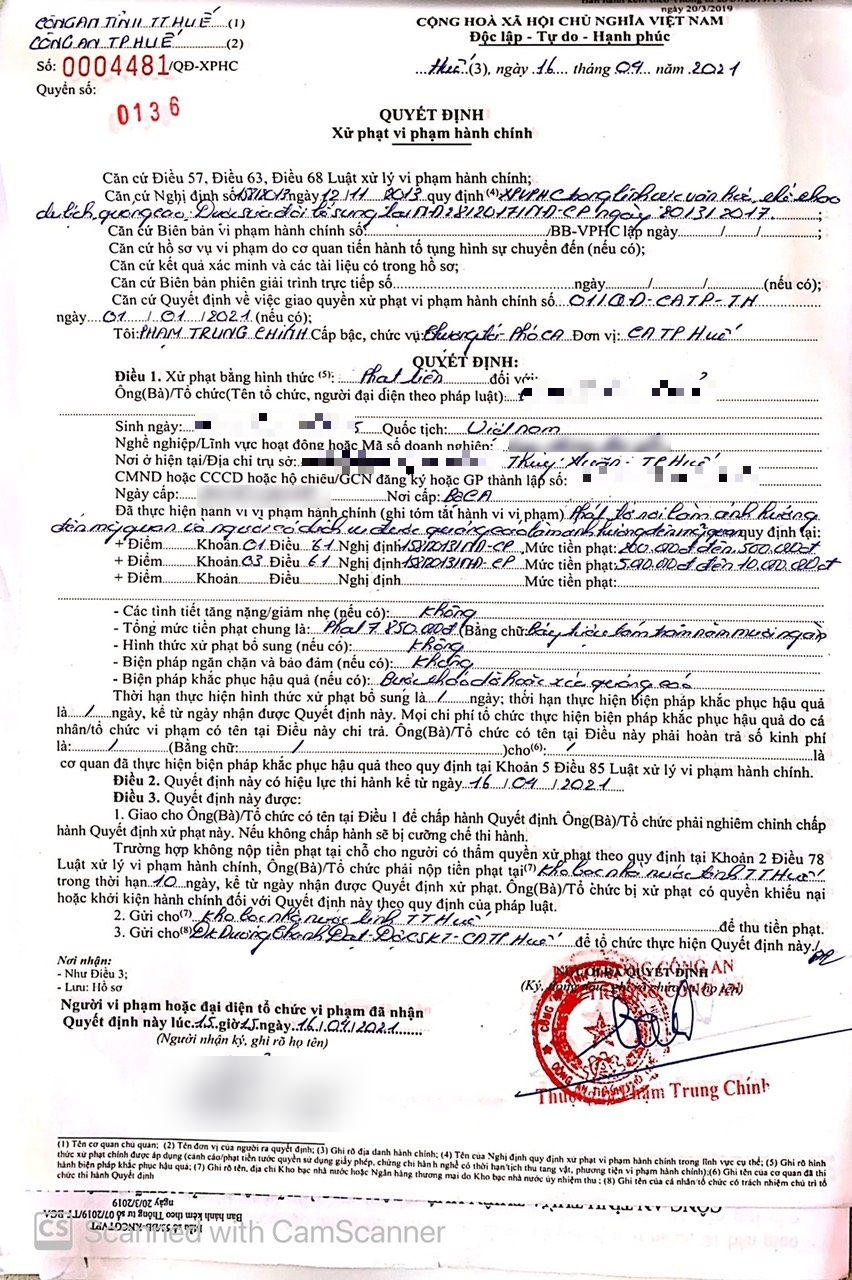 ngày 20/3/2019
CÔNG AN TỈNH TT HUẾ (1)
CÔNG AN TP HUẾ (2)
Số: 0004481/QĐ-XPHC
Quyển số:
0136
CỘNG HOÀ XÃ HỘI CHỦ NGHĨA VIỆT NAM
Độc lập - Tự do - Hạnh phúc
Huế (3), ngày 16 tháng 04 năm 2021
QUYẾT ĐỊNH
Xử phạt vi phạm hành chính
Căn cứ Điều 57, Điều 63, Điều 68 Luật xử lý vi phạm hành chính;
Căn cứ Nghị định số 158/2013 ngày 12/11/2013 quy định (4) XPVPHC trong lĩnh vực văn hóa, thể thao
du lịch, quảng cáo. Được sửa đổi bổ sung tại NĐ 28/2017/NĐ-CP ngày 20/3/2017 ;
Căn cứ Biên bản vi phạm hành chính số: /BB-VPHC lập ngày / / ;
Căn cứ hồ sơ vụ vi phạm do cơ quan tiến hành tố tụng hình sự chuyển đến (nếu có);
Căn cứ kết quả xác minh và các tài liệu có trong hồ sơ;
Căn cứ Biên bản phiên giải trình trực tiếp số ngày / / (nếu có);
Căn cứ Quyết định về việc giao quyền xử phạt vi phạm hành chính số 01/QĐ-CATP-TH
ngày 01 / 01 / 2021 (nếu có);
Tôi: PHẠM TRUNG CHÍNH Cấp bậc, chức vụ: Thượng tá - Phó CA Đơn vị: CA TP Huế
QUYẾT ĐỊNH:
Điều 1. Xử phạt bằng hình thức (5): Phạt tiền đối với:
Ông(Bà)/Tổ chức(Tên tổ chức, người đại diện theo pháp luật):
Sinh ngày: 5 Quốc tịch: Việt nam
Nghề nghiệp/Lĩnh vực hoạt động hoặc Mã số doanh nghiệp:
Nơi ở hiện tại/Địa chỉ trụ sở: Thủy Xuân - TP Huế
CMND hoặc CCCD hoặc hộ chiếu/GCN đăng ký hoặc GP thành lập số:
Ngày cấp: Nơi cấp: BỘCA
Đã thực hiện hành vi vi phạm hành chính (ghi tóm tắt hành vi vi phạm) Phát tờ rơi làm ảnh hưởng
đến mỹ quan và người có dịch vụ được quảng cáo làm ảnh hưởng đến mỹ quan quy định tại:
+ Điểm Khoản 01 Điều 61 Nghị định 158/2013/NĐ-CP Mức tiền phạt: 200.000đ đến 500.000đ
+ Điểm Khoản 03 Điều 61 Nghị định 158/2013/NĐ-CP Mức tiền phạt: 5.000.000đ đến 10.000.000đ
+ Điểm Khoản Điều Nghị định Mức tiền phạt:
- Các tình tiết tăng nặng/giảm nhẹ (nếu có): Không
- Tổng mức tiền phạt chung là: Phạt 7.850.000đ (Bằng chữ: Bảy triệu tám trăm năm mươi ngàn
- Hình thức xử phạt bổ sung (nếu có): Không
- Biện pháp ngăn chặn và bảo đảm (nếu có): Không
- Biện pháp khắc phục hậu quả (nếu có): Buộc tháo dỡ hoặc xóa quảng cáo
Thời hạn thực hiện hình thức xử phạt bổ sung là / ngày; thời hạn thực hiện biện pháp khắc phục hậu quả
là / ngày, kể từ ngày nhận được Quyết định này. Mọi chi phí tổ chức thực hiện biện pháp khắc phục hậu quả do cá
nhân/tổ chức vi phạm có tên tại Điều này chi trả. Ông(Bà)/Tổ chức có tên tại Điều này phải hoàn trả số kinh phí
là: / (Bằng chữ: / )cho(6): / là
cơ quan đã thực hiện biện pháp khắc phục hậu quả theo quy định tại Khoản 5 Điều 85 Luật xử lý vi phạm hành chính.
Điều 2. Quyết định này có hiệu lực thi hành kể từ ngày 16 / 04 / 2021
Điều 3. Quyết định này được:
1. Giao cho Ông(Bà)/Tổ chức có tên tại Điều 1 để chấp hành Quyết định Ông(Bà)/Tổ chức phải nghiêm chỉnh chấp
hành Quyết định xử phạt này. Nếu không chấp hành sẽ bị cưỡng chế thi hành.
Trường hợp không nộp tiền phạt tại chỗ cho người có thẩm quyền xử phạt theo quy định tại Khoản 2 Điều 78
Luật xử lý vi phạm hành chính, Ông(Bà)/Tổ chức phải nộp tiền phạt tại(7) Kho bạc nhà nước tỉnh TT Huế
trong thời hạn 10 ngày, kể từ ngày nhận được Quyết định xử phạt. Ông(Bà)/Tổ chức bị xử phạt có quyền khiếu nại
hoặc khởi kiện hành chính đối với Quyết định này theo quy định của pháp luật.
2. Gửi cho(7) Kho bạc nhà nước tỉnh TT Huế để thu tiền phạt.
3. Gửi cho(8) Đ/c Dương Thanh Đạt - Đội CSKT - CATP Huế để tổ chức thực hiện Quyết định này./.
Nơi nhận:
- Như Điều 3;
- Lưu: Hồ sơ
NGƯỜI RA QUYẾT ĐỊNH
(Ký, đóng dấu, ghi rõ chức vụ, họ tên)
Người vi phạm hoặc đại diện tổ chức vi phạm đã nhận
Quyết định này lúc 15 giờ 15 ngày 16/04/2021
(Người nhận ký, ghi rõ họ tên)
Phạm Trung Chính
(1) Tên cơ quan chủ quản; (2) Tên đơn vị của người ra quyết định; (3) Ghi rõ địa danh hành chính; (4) Tên của Nghị định quy định xử phạt vi phạm hành chính trong lĩnh vực cụ thể; (5) Ghi rõ hình
thức xử phạt chính được áp dụng (cảnh cáo/phạt tiền tước quyền sử dụng giấy phép, chứng chỉ hành nghề có thời hạn/tịch thu tang vật, phương tiện vi phạm hành chính);(6) Ghi tên của cơ quan đã thi
hành biện pháp khắc phục hậu quả; (7) Ghi rõ tên, địa chỉ Kho bạc nhà nước hoặc Ngân hàng thương mại do Kho bạc nhà nước ủy nhiệm thu ; (8) Ghi tên của cá nhân tổ chức có trách nhiệm chủ trì tổ
chức thi hành Quyết định
Ban hành kèm theo Thông tư số 07/2019/TT-BCA
ngày 20/3/2019
CS Scanned with CamScanner